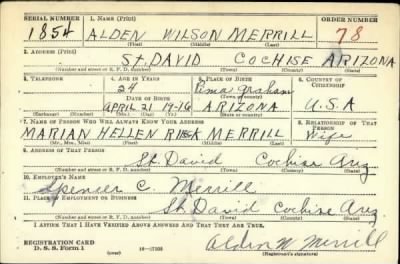 SERIAL NUMBER 1. NAME (Print) ORDER NUMBER
1854 ALDEN WILSON MERRILL 78
(First) (Middle) (Last)
2. ADDRESS (Print)
St. DAVID COCHISE ARIZONA
(Number and street or R. F. D. number) (Town) (County) (State)
3. TELEPHONE 4. AGE IN YEARS 5. PLACE OF BIRTH 6. COUNTRY OF CITIZENSHIP
24 Pima, Graham
DATE OF BIRTH (Town or county)
APRIL 21 1916 ARIZONA U.S.A
(Exchange) (Number) (Mo.) (Day) (Yr.) (State or country)
7. NAME OF PERSON WHO WILL ALWAYS KNOW YOUR ADDRESS 8. RELATIONSHIP OF THAT PERSON
MARIAN HELLEN MERRILL Wife
(Mr., Mrs., Miss) (First) (Middle) (Last)
9. ADDRESS OF THAT PERSON
St. David Cochise Ariz.
(Number and street or R. F. D. number) (Town) (County) (State)
10. EMPLOYER'S NAME
Spencer C. Merrill
11. PLACE OF EMPLOYMENT OR BUSINESS
St. David Cochise Ariz.
(Number and street or R. F. D. number) (Town) (County) (State)
I AFFIRM THAT I HAVE VERIFIED ABOVE ANSWERS AND THAT THEY ARE TRUE.
REGISTRATION CARD
D. S. S. Form 1 (over) Alden W Merrill
(Registrant's signature)